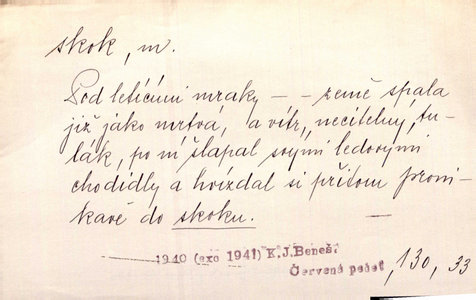 skok, m.
Pod letícími mraky – – země spala
již jako mrtvá, a vítr, necitelný tu-
lák, po ní šlapal svými ledovými
chodidly a hvízdal si přitom proni-
kavě do skoku.
1940 (exc 1941) K.J.Beneš:
Červená pečeť, 130, 33